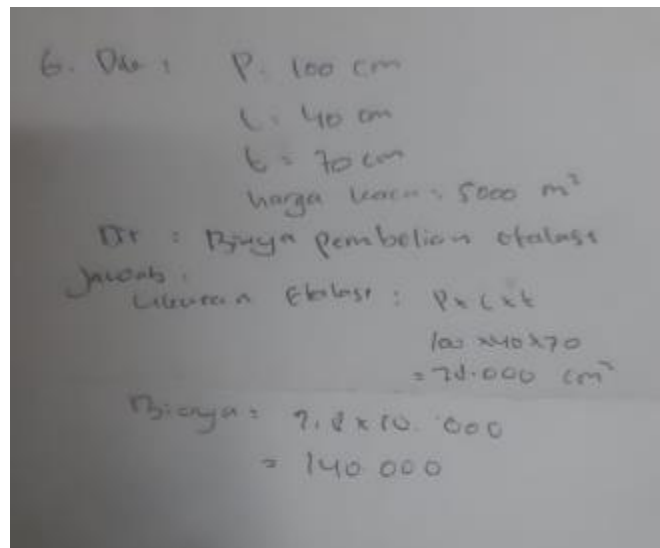 6. Dik : P. 100 cm
L : 40 cm
t = 70 cm
harga kaca : 5000 m²
Dit : Biaya pembelian etalase
Jawab :
Ukuran Etalase : P x L x t
100 x 40 x 70
= 28.000 cm
Biaya = x 10. 000
= 140 000